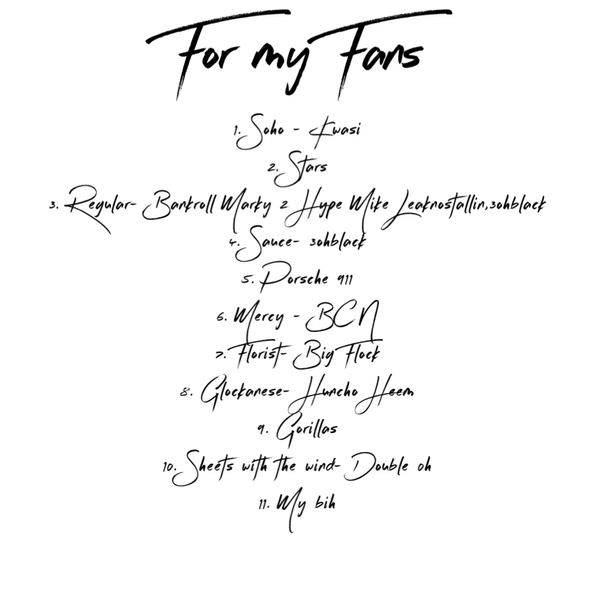 For my Fans
1. Soho - Kwasi
2. Stars
3. Regular- Bankroll Marky 2 Hype Mike Leaknostallin,3ohblack
4. Sauce- 3ohblack
5. Porsche 911
6. Mercy - BCN
7. Florist- Big Flock
8. Glockanese- Huncho Heem
9. Gorillas
10. Sheets with the wind- Double oh
11. My bih